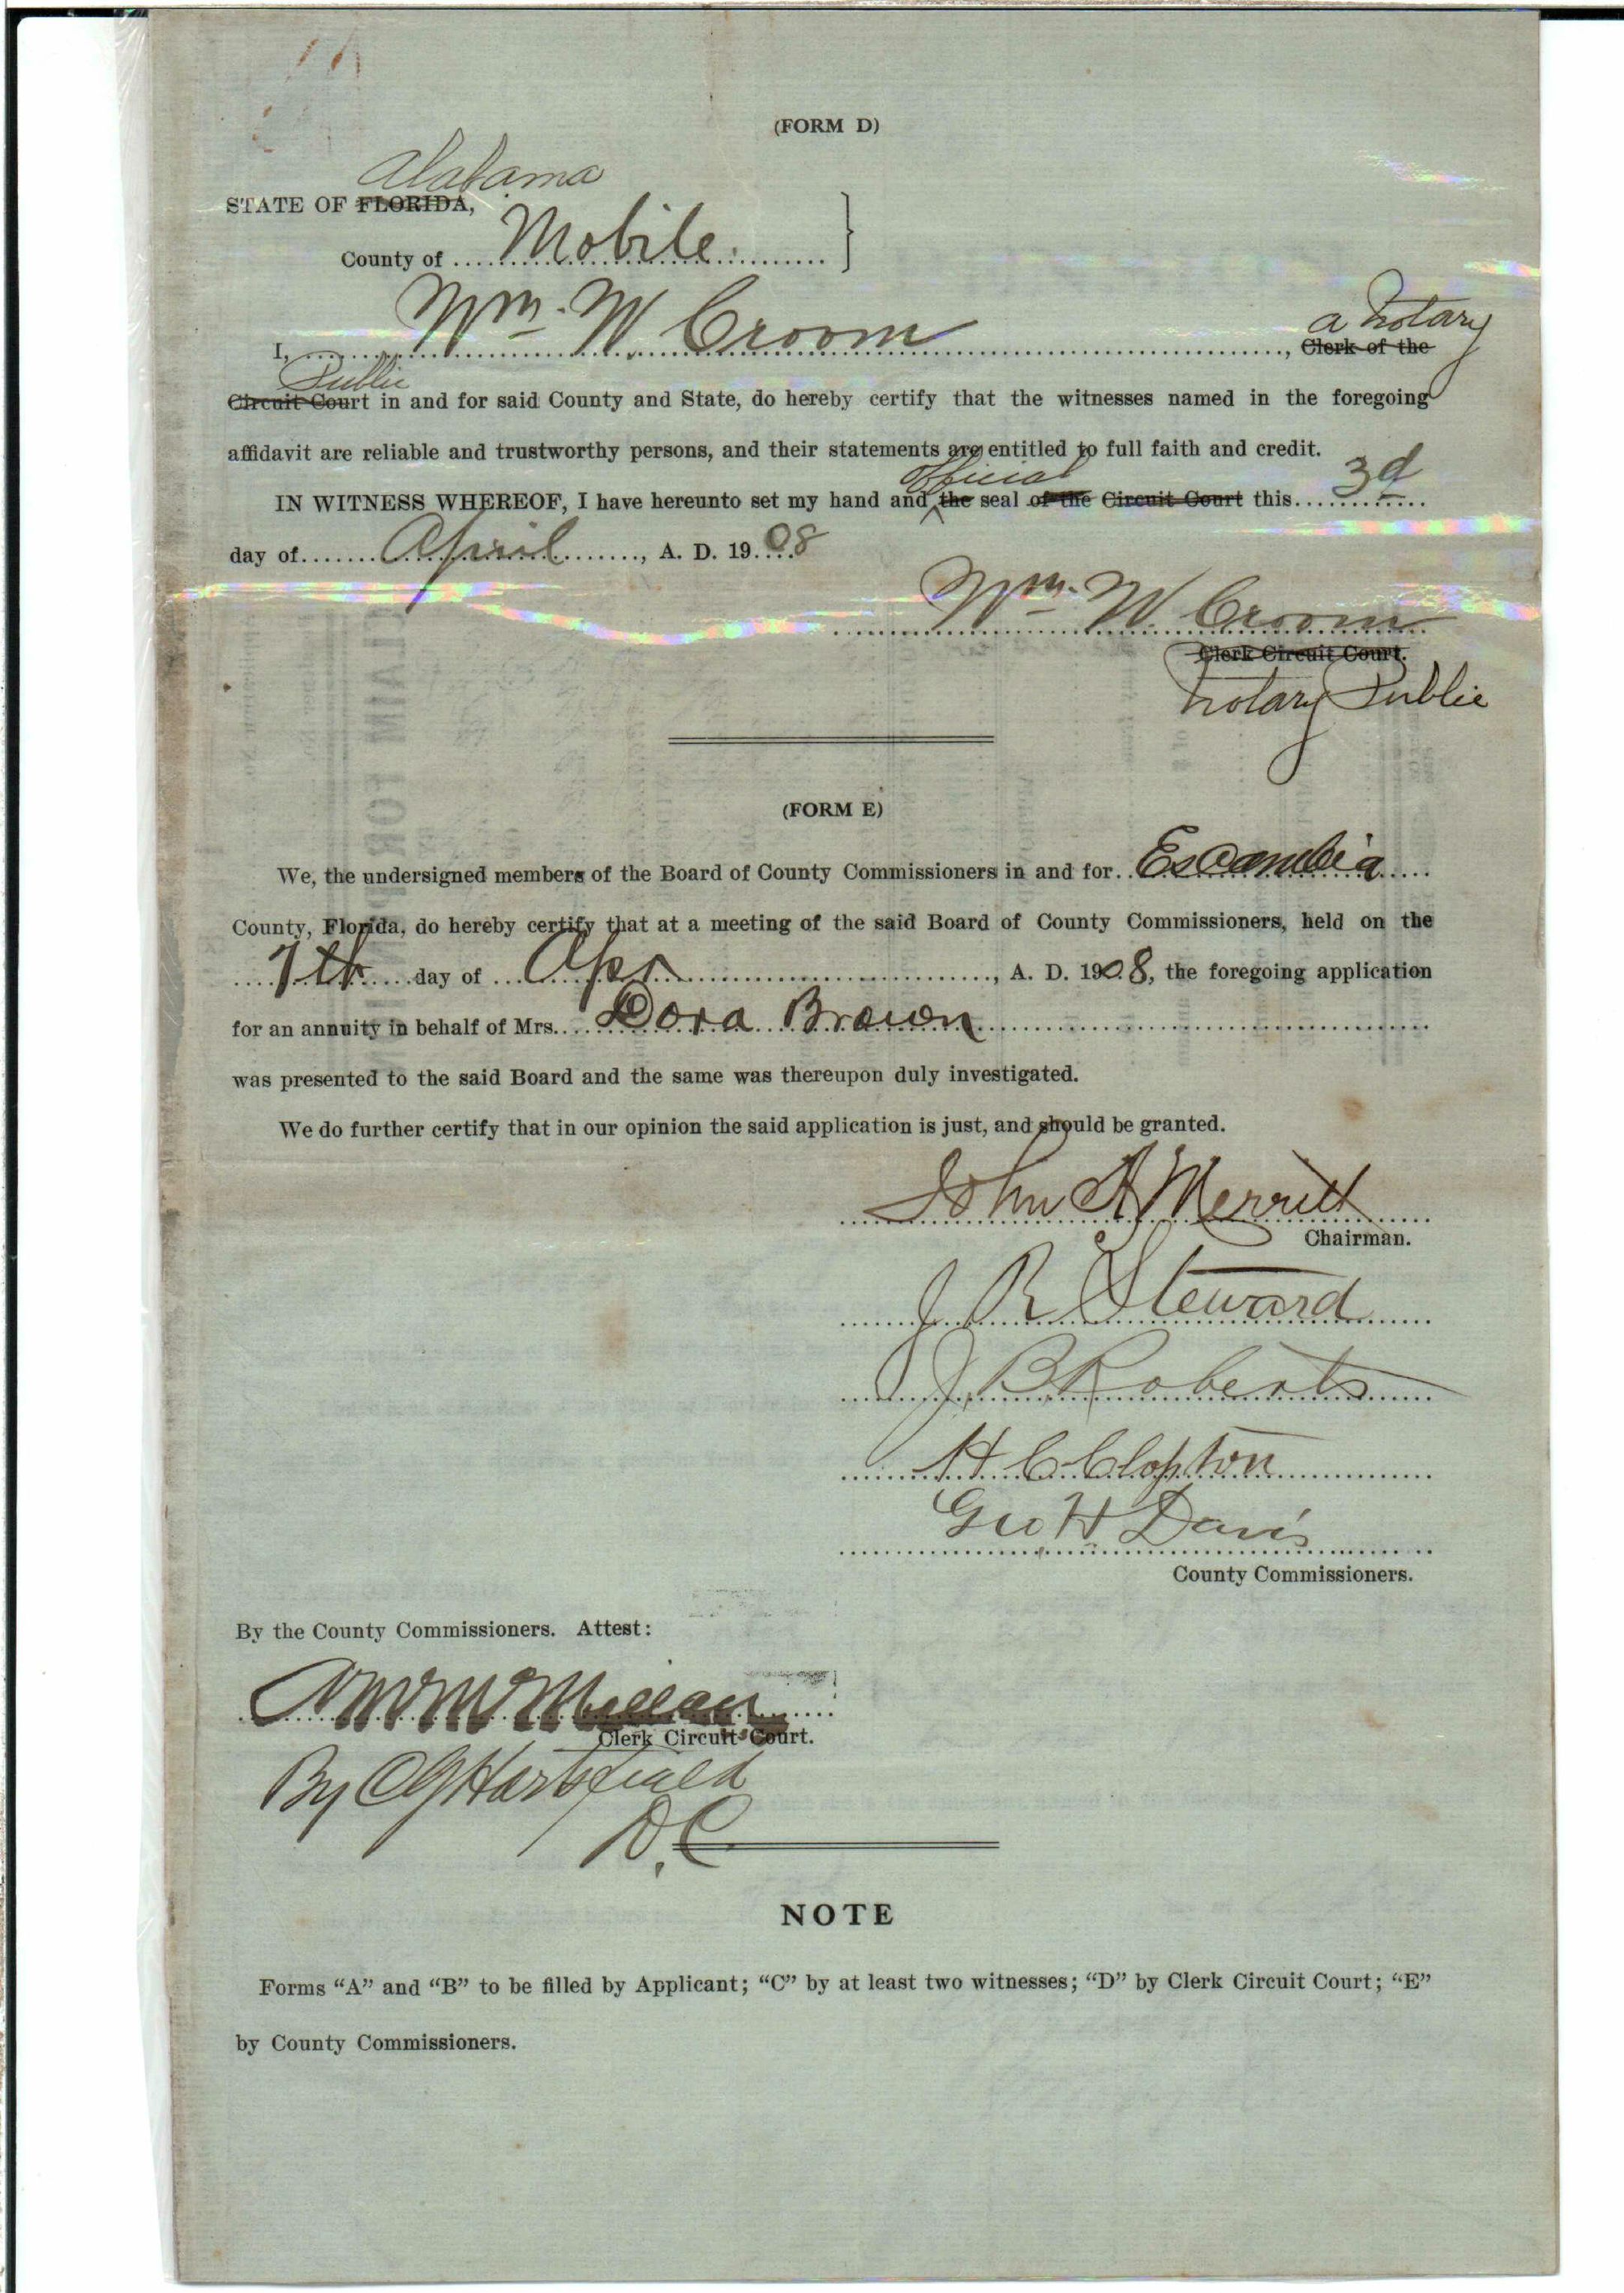 (FORM D)
Alabama
STATE OF FLORIDA,
County of Mobile.
I, Wm. W Croom, a Notary Clerk of the
Public
Circuit Court in and for said County and State, do hereby certify that the witnesses named in the foregoing
affidavit are reliable and trustworthy persons, and their statements are entitled to full faith and credit.
official
IN WITNESS WHEREOF, I have hereunto set my hand and the seal of the Circuit Court this 3d
day of April, A. D. 1908
Wm. W. Croom
Clerk Circuit Court.
Notary Public
(FORM E)
We, the undersigned members of the Board of County Commissioners in and for Escambia
County, Florida, do hereby certify that at a meeting of the said Board of County Commissioners, held on the
7th day of Apr, A. D. 1908, the foregoing application
for an annuity in behalf of Mrs. Dora Brown
was presented to the said Board and the same was thereupon duly investigated.
We do further certify that in our opinion the said application is just, and should be granted.
John A Merritt
Chairman.
J R Steward
J B Roberts
H C Clopton
Geo H Davis
County Commissioners.
By the County Commissioners. Attest:
McMillan
Clerk Circuit Court.
By Hartsfield
D.C
NOTE
Forms “A” and “B” to be filled by Applicant; “C” by at least two witnesses; “D” by Clerk Circuit Court; “E”
by County Commissioners.